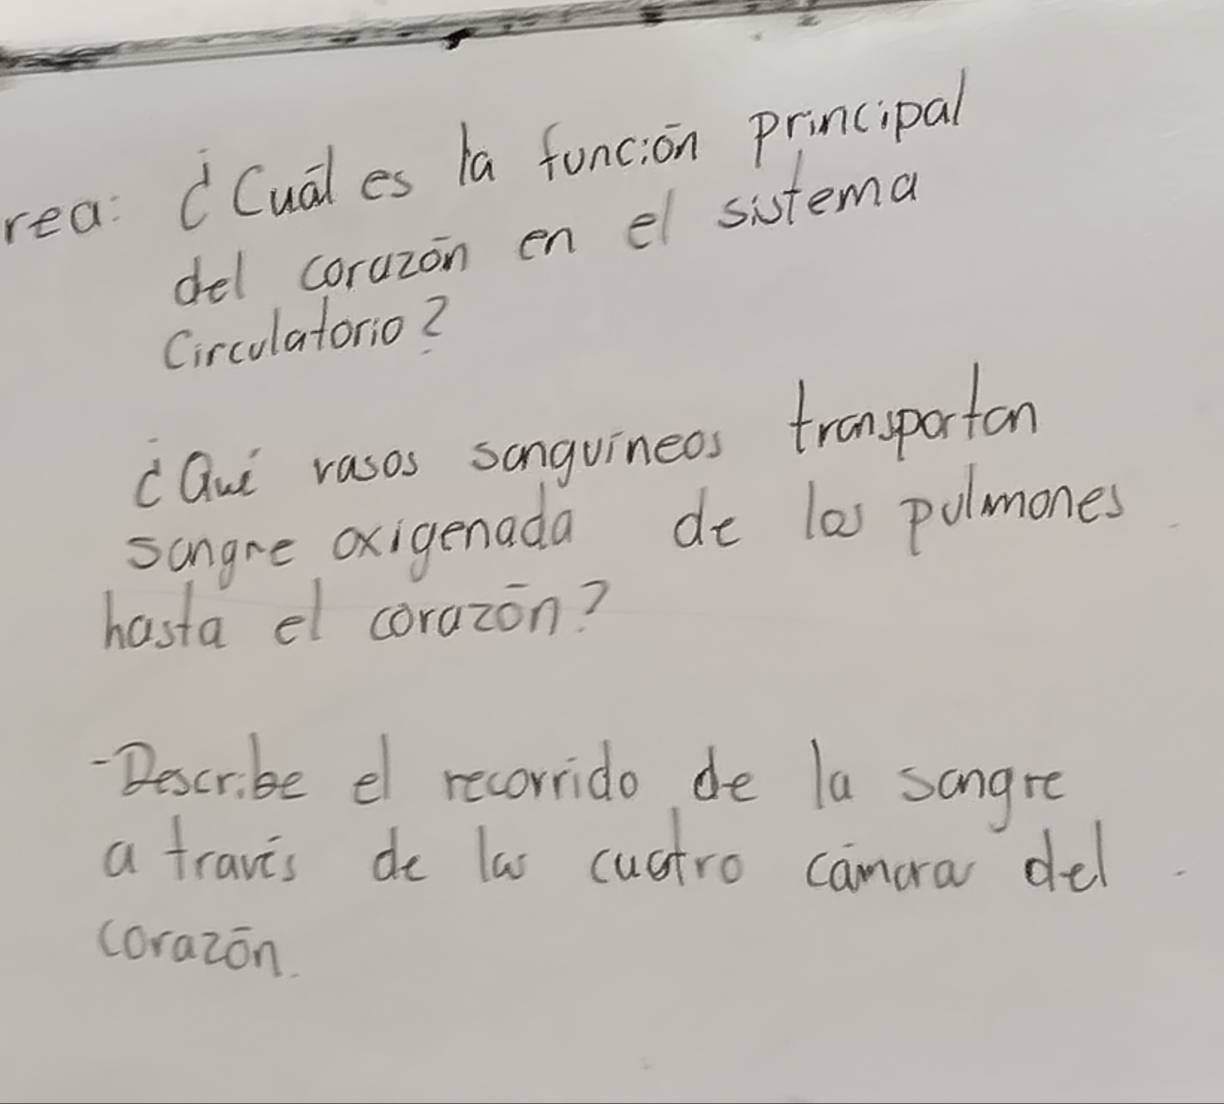 rea: ¿Cuál es la función principal
del corazón en el sistema
Circulatorio?
¿Qué vasos sanguíneos transportan
sangre oxigenada de los pulmones
hasta el corazón?
-Describe el recorrido de la sangre
a través de las cuatro cámaras del
corazón.